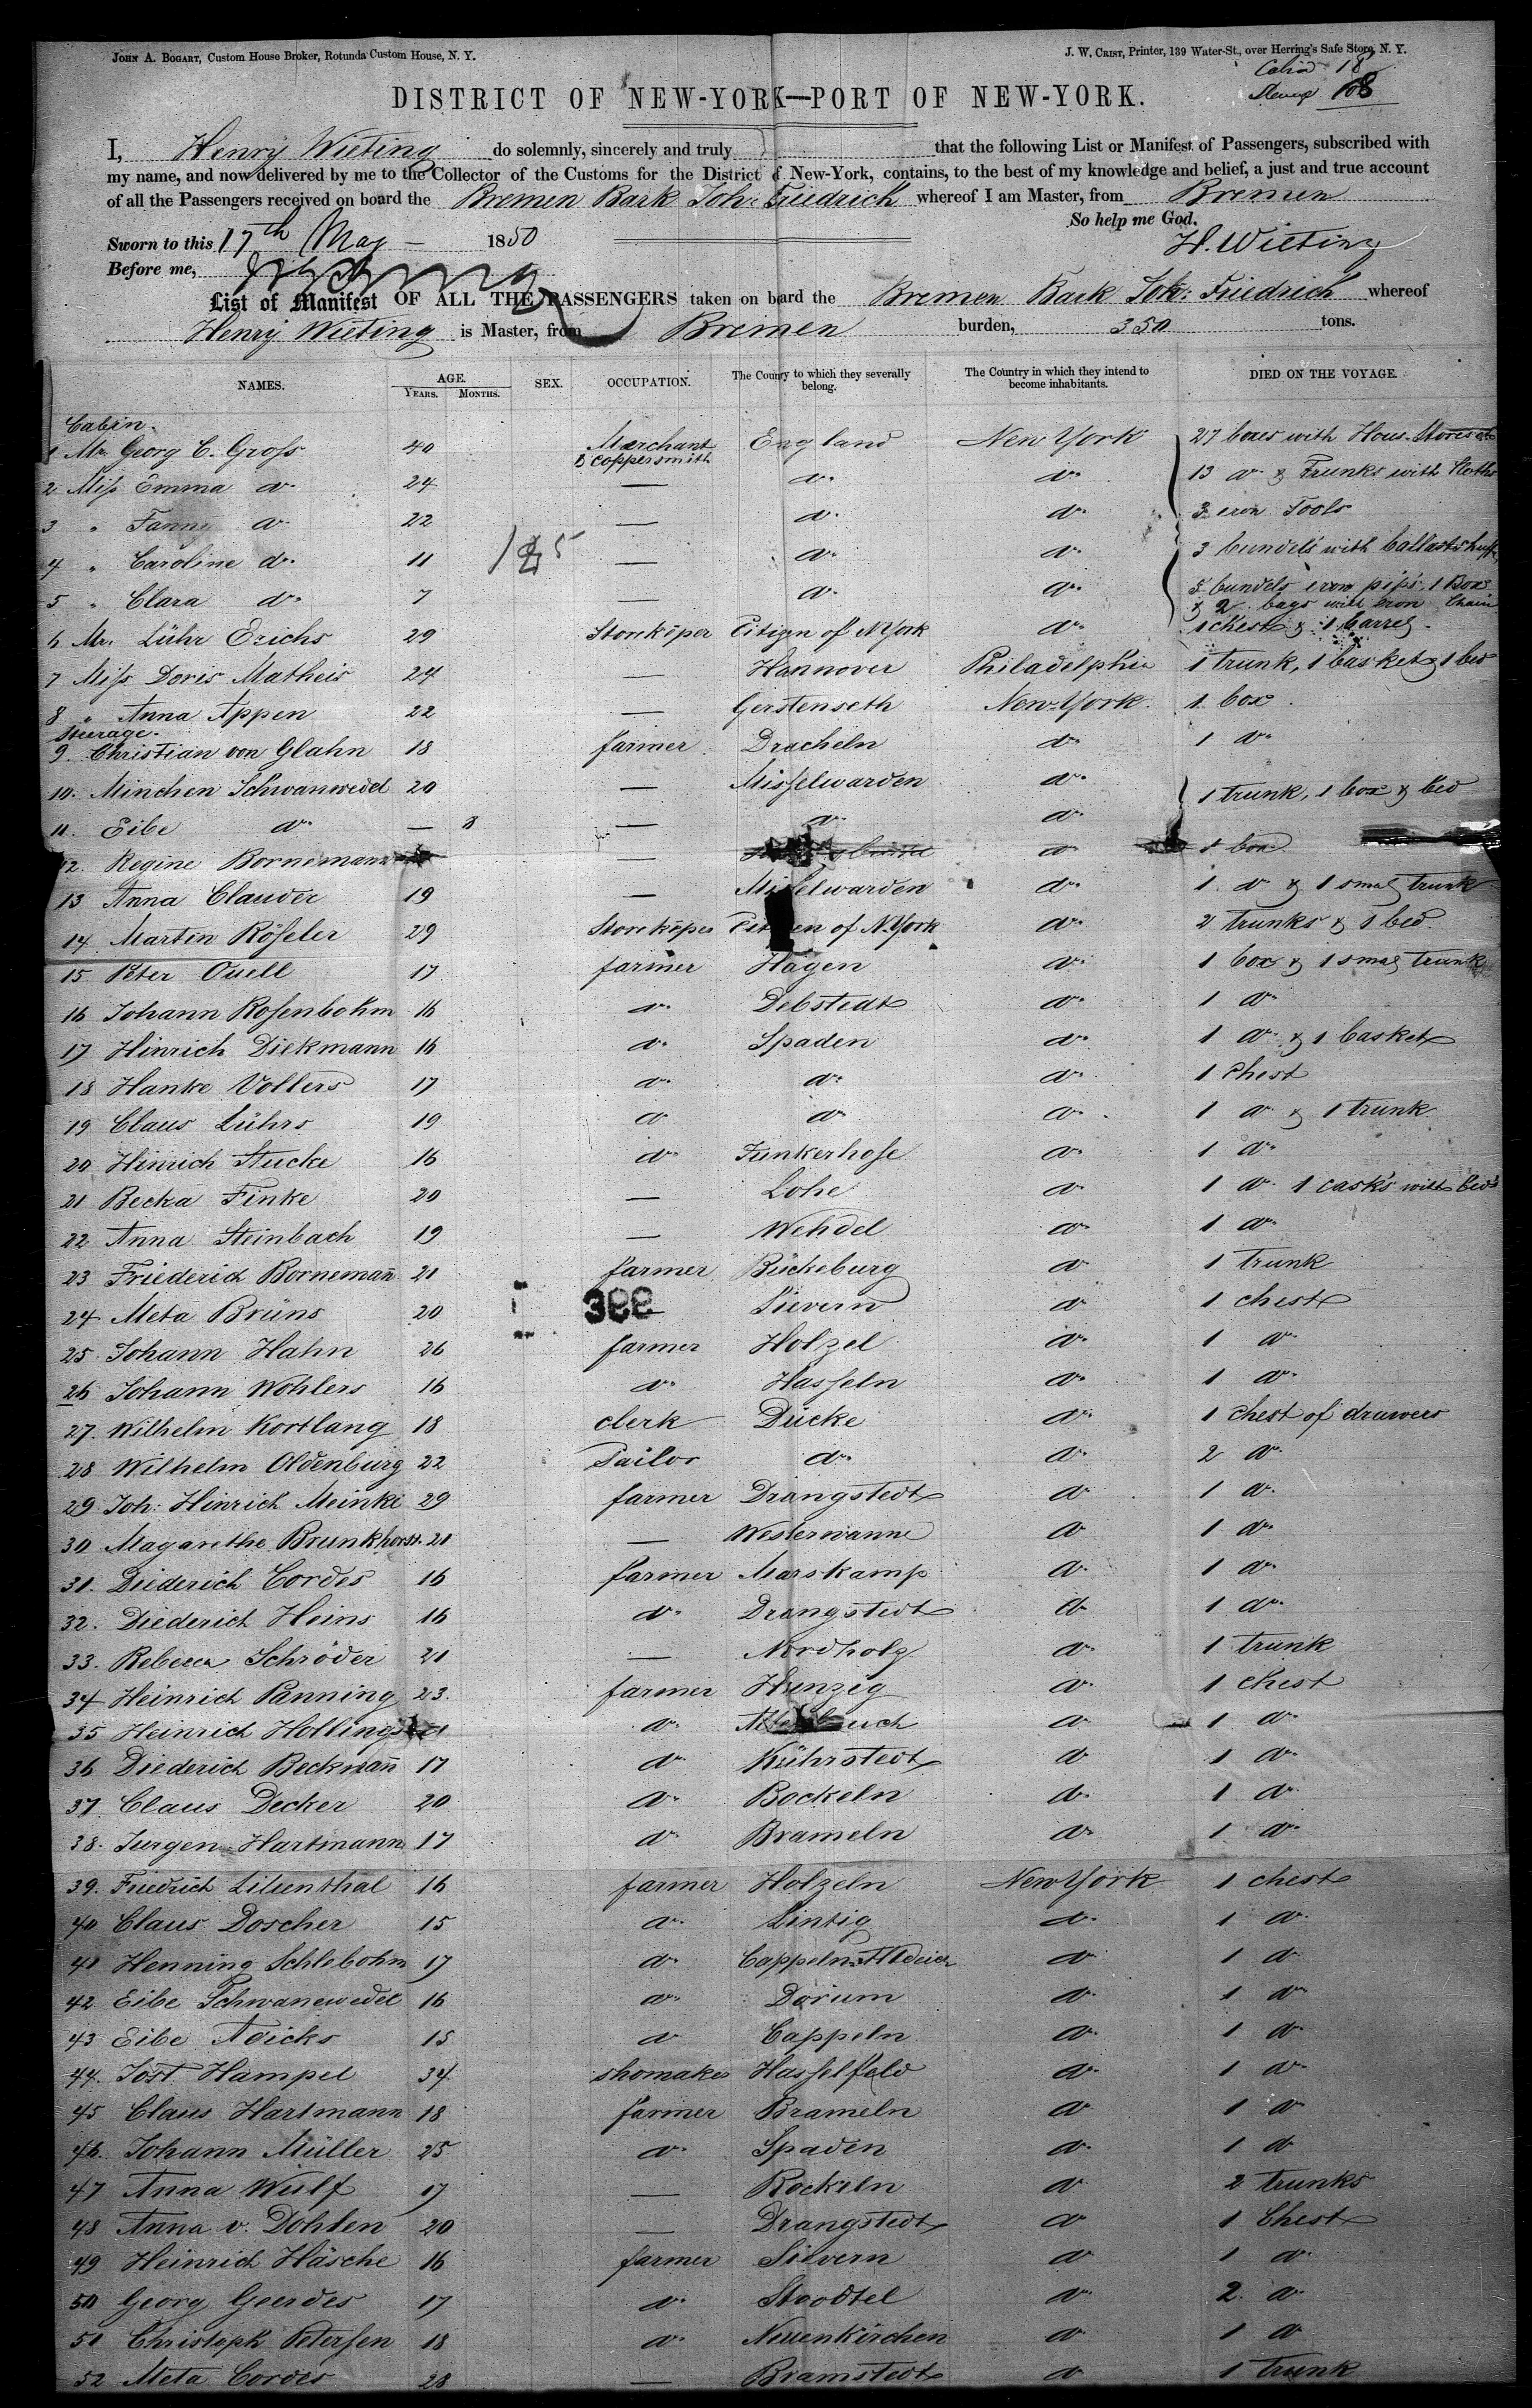 JOHN A. BOGART, Custom House Broker, Rotunda Custom House, N. Y.
J. W. CRIST, Printer, 139 Water-St., over Herring's Safe Store, N. Y.
Cabin 18
108
DISTRICT OF NEW-YORK—PORT OF NEW-YORK.
I, Henry Wieting do solemnly, sincerely and truly that the following List or Manifest of Passengers, subscribed with
my name, and now delivered by me to the Collector of the Customs for the District of New-York, contains, to the best of my knowledge and belief, a just and true account
of all the Passengers received on board the Bremen Bark Joh: Friedrich whereof I am Master, from Bremen
So help me God.
Sworn to this 17th May 1850 H. Wieting
Before me,
List of Manifest OF ALL THE PASSENGERS taken on board the Bremen Bark Joh: Friedrich whereof
Henry Wieting is Master, from Bremen burden, 350 tons.
NAMES. AGE. YEARS. MONTHS. SEX. OCCUPATION. The County to which they severally belong. The Country in which they intend to become inhabitants. DIED ON THE VOYAGE.
Cabin.
1 Mr. Georg C. Gross 40 Merchant & Coppersmith England New York 27 boxes with Hous Stores etc
2 Miss Emma do. 24 — do. do. 13 do. & Trunks with Cloths
3 " Fanny do. 22 — do. do. 3 iron Tools
4 " Caroline do. 11 — do. do. 3 bundels with
5 " Clara do. 7 — do. do. 5 bundels iron pips, 1 Box & 2 bags with iron Chain
6 Mr. Lühr Erichs 29 Storeköper Citizen of N.York do. 1 chest & 1 barrel
7 Miss Doris Matheis 24 — Hannover Philadelphia 1 trunk, 1 basket & 1 bed
8 " Anna Appen 22 — Gerstenseth New-York. 1 box
Steerage.
9. Christian von Glahn 18 farmer Dracheln do. 1 do.
10. Minchen Schwanwedel 20 — Misselwarden do. 1 trunk, 1 box & bed
11. Eibe do. — 8 — do. do.
12. Regine Bornemann — do 1 box
13 Anna Clauder 19 — Misselwarden do. 1 do & 1 smal trunk
14. Martin Röseler 29 Storeköper Citizen of N.York do. 2 trunks & 1 bed.
15 Peter Ouell 17 farmer Hagen do. 1 box & 1 smal trunk
16 Johann Rosenbohm 16 do. Debstedt do. 1 do.
17 Hinrich Diekmann 16 do. Spaden do. 1 do. & 1 basket
18 Hanke Vollers 17 do. do. do. 1 chest
19 Claus Lührs 19 do do do. 1 do. & 1 trunk
20 Hinrich Stucke 16 do. Junkerhose do. 1 do.
21 Becka Finke 20 — Lohe do. 1 do. 1 cask's with bed's
22 Anna Steinbach 19 — Wehdel do. 1 do.
23 Friederich Bornemañ 21 farmer Bückeburg do. 1 trunk
24 Meta Brüns 20 — Sievern do 1 chest
25 Johann Hahn 26 farmer Holzel do. 1 do.
26 Johann Wohlers 16 do. Hasseln do. 1 do.
27. Wilhelm Kortlang 18 clerk Dücke do. 1 chest of drawers
28 Wilhelm Oldenburg 22 Tailor do. do. 2 do.
29. Joh: Hinrich Meinke 29 farmer Drangstedt do 1 do.
30 Magarethe Brunkhorst. 21 — Westerwanne do 1 do.
31. Diederich Cordes 16 farmer Marskamp do. 1 do.
32. Diederich Heins 16 do. Drangstedt do 1 do.
33. Rebecca Schröder 21 — Nordholz do. 1 trunk
34 Heinrich Panning 23. farmer Hunzig do. 1 chest
35 Heinrich do. do 1 do.
36 Diederich Beckmañ 17 do. Kührstedt do 1 do.
37. Claus Decker 20 do. Bockeln do. 1 do.
38. Jurgen Hartmann 17 do. Brameln do. 1 do.
39. Friedrich Lilienthal 16 farmer Holzeln New York 1 chest
40 Claus Doscher 15 do. Lintig do. 1 do.
41 Henning Schlebohm 17 do. Cappeln do 1 do
42 Eibe Schwanewedel 16 do. Dorum do. 1 do
43 Eibe Adicks 15 do Cappeln do. 1 do
44. Jost Hampel 34 shomaker Hasselfeld do. 1 do.
45 Claus Hartmann 18 farmer Brameln do 1 do
46. Johann Müller 25 do. Spaden do. 1 do
47 Anna Wulf 17 — Bockeln do 2 trunks
48 Anna v. Dohlen 20 — Drangstedt do 1 Chest
49 Heinrich Häsche 16 farmer Sievern do 1 do.
50 Georg Geerdes 17 do. Stoodtel do. 2. do
51 Christoph Petersen 18 do. Neuenkirchen do 1 do
52 Meta Cordes 28 — Bramstedt do 1 trunk